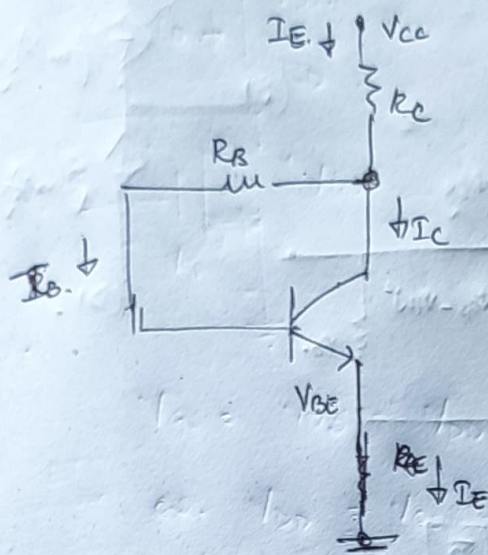 IE. VCC
RC
RB
IC
IB.
VBE
RE
IE